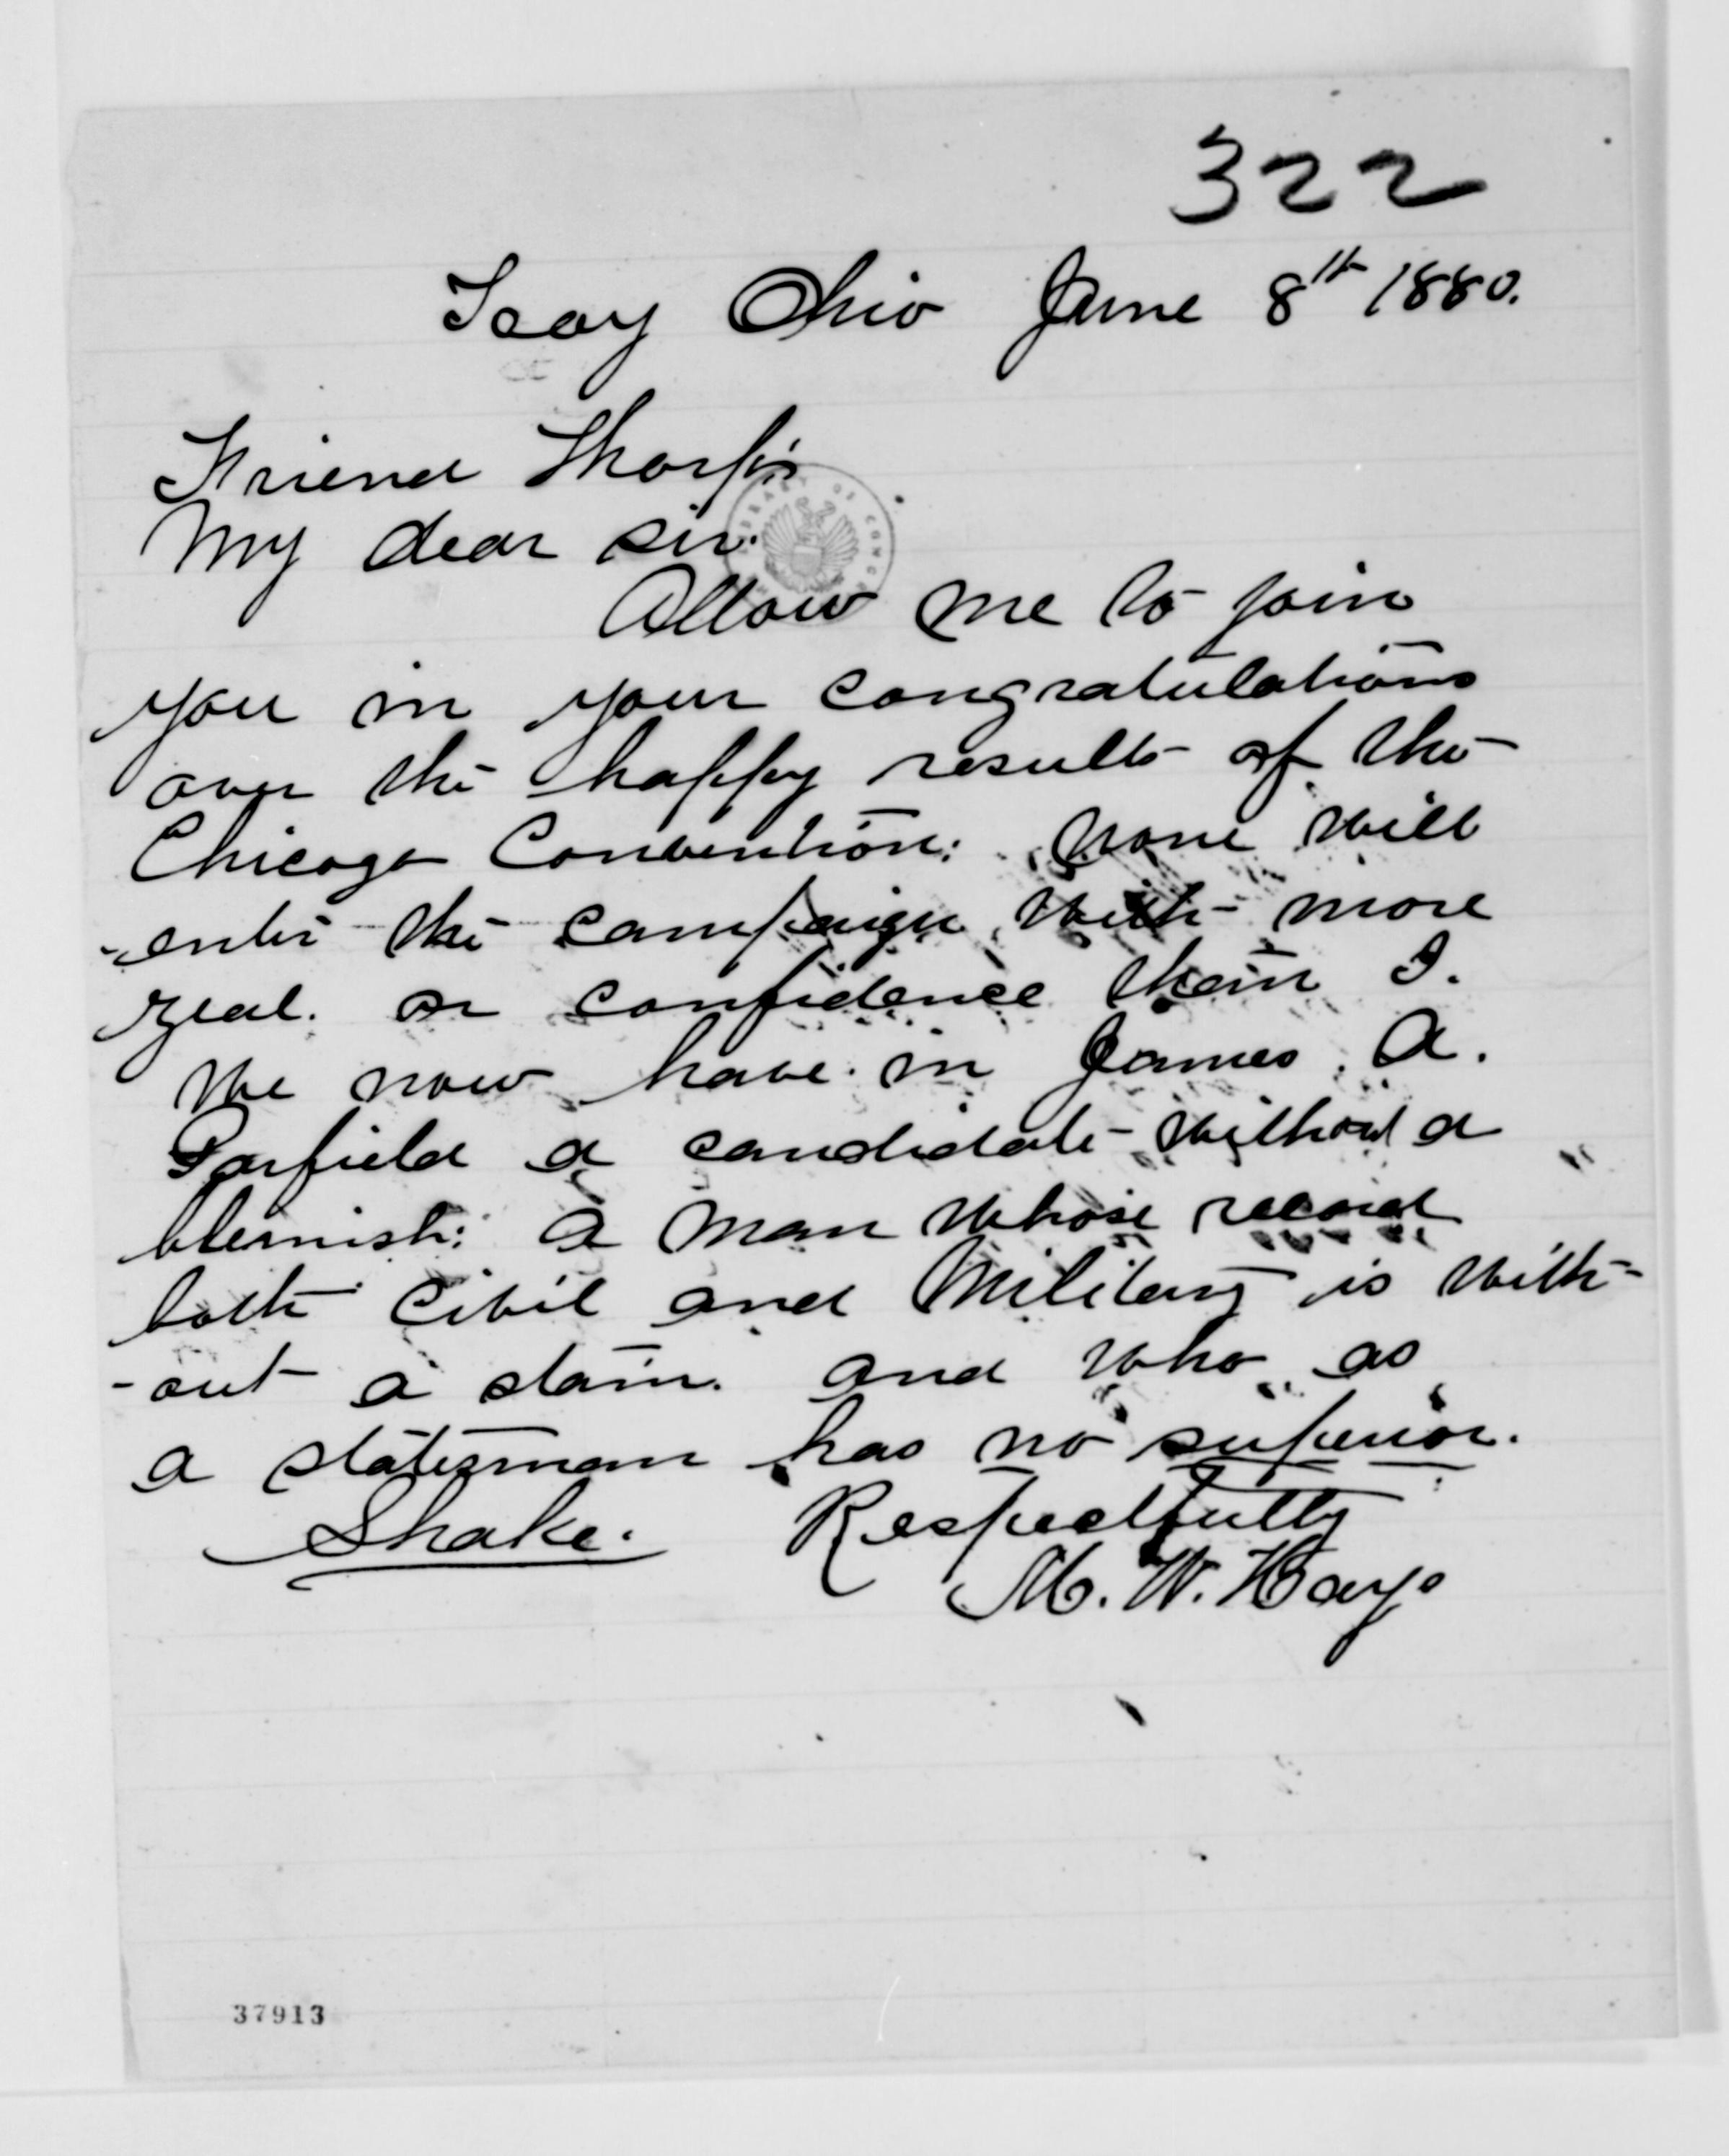 322
Troy Ohio June 8th 1880.
Friend Thorp
My dear sir.
LIBRARY OF CONGRESS
Allow me to join
you in your congratulations
over the happy results of the
Chicago Convention: None will
enter the campaign with more
zeal. or confidence than I.
We now have in James. A.
Garfield a candidate without a
blemish: A man whose record
both civil and Military is with-
-out a stain. and who as
a statesman has no superior.
Shake. Respectfully
M. W. Hays
37913